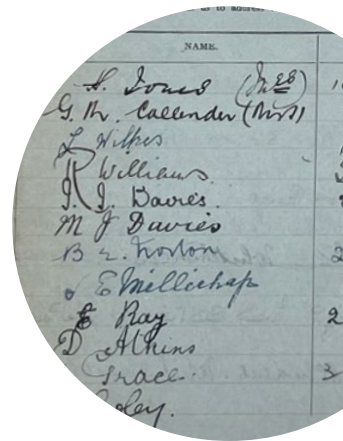 us to address
NAME.
H. Jones (Mrs)
G. M. Callender (Mrs)
L Wilkes
R Williams.
I. I. Davies.
M J Davies
B E. Norton
E Millichap
E Ray
2
D Atkins
Grace.
3
oley.